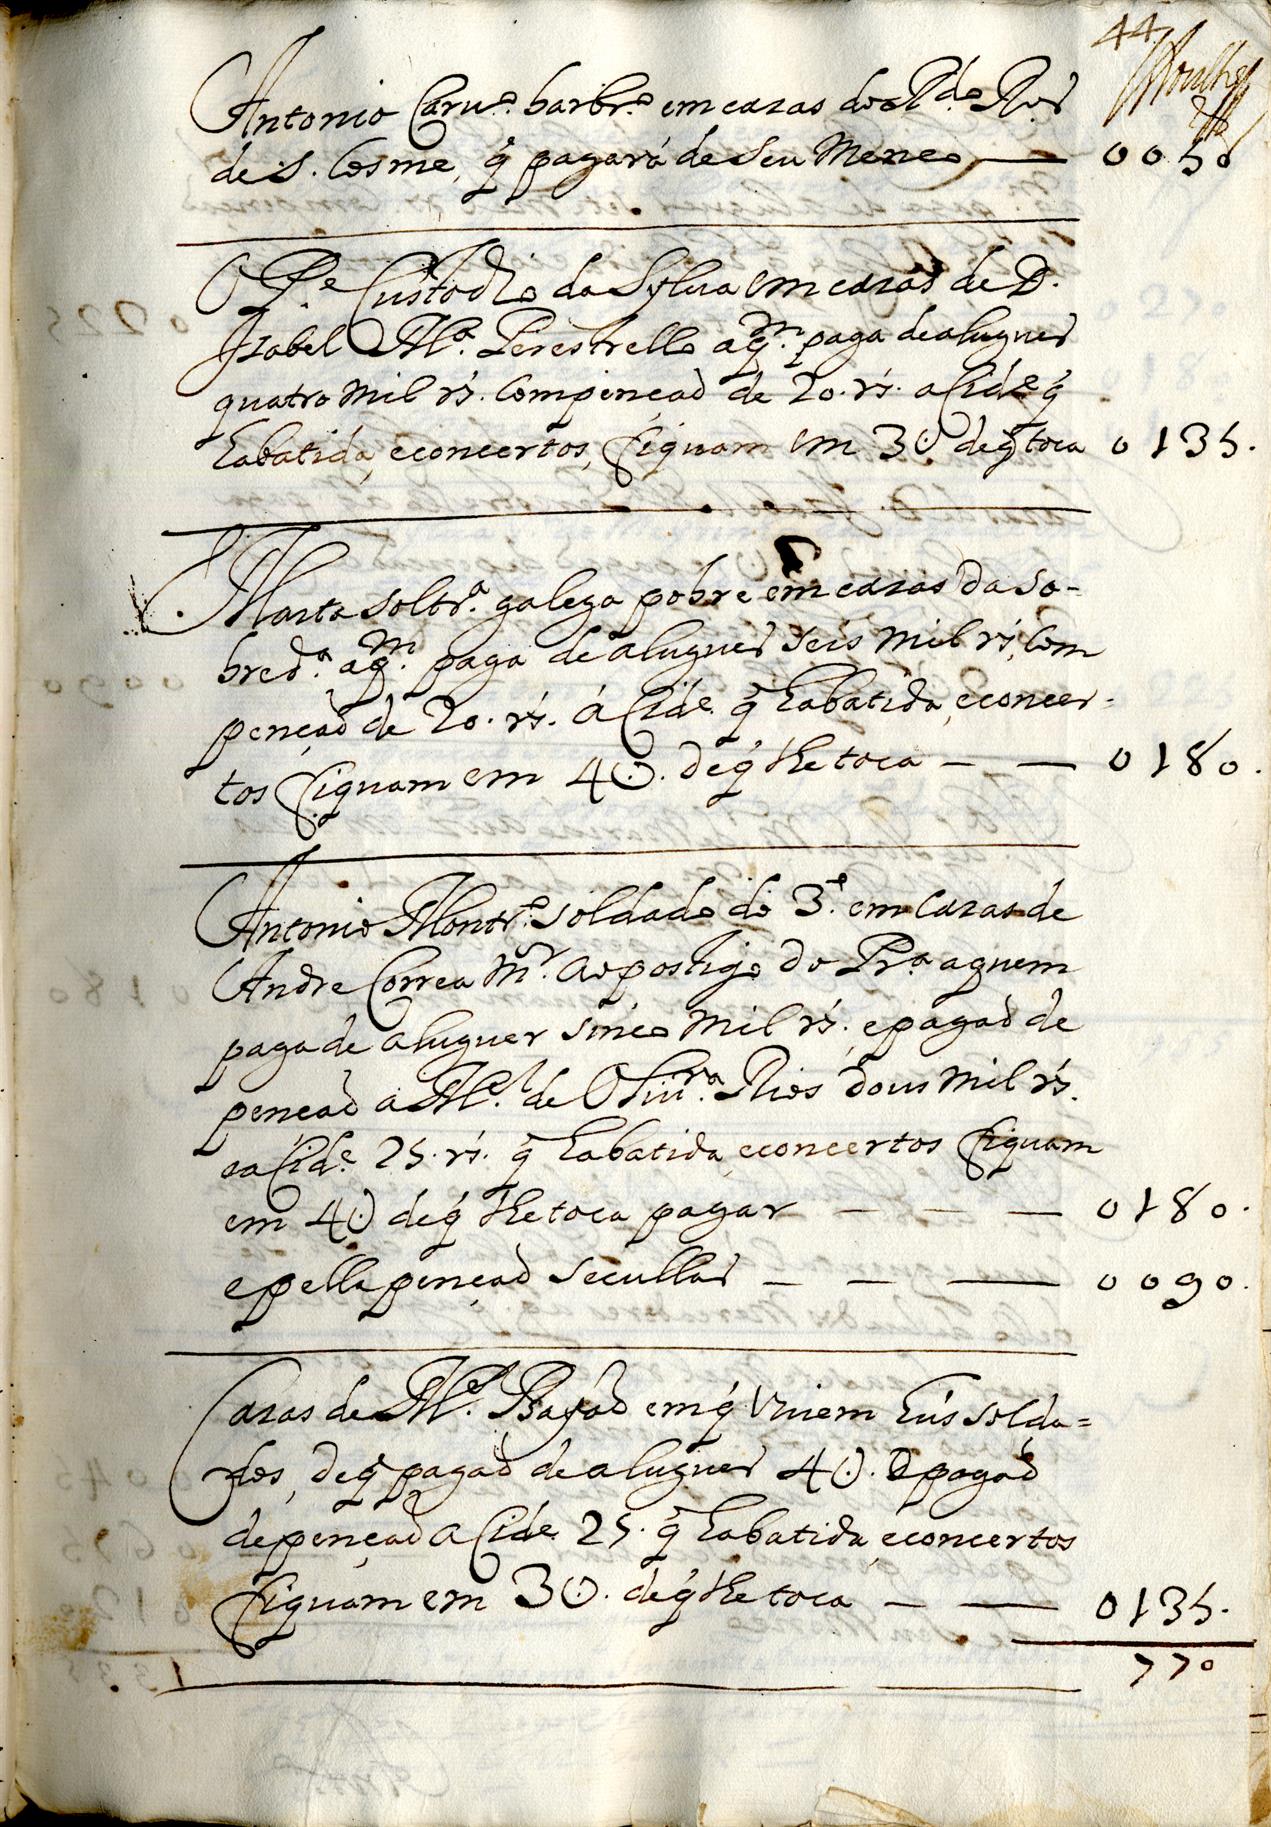 44
Antonio Carvº. barbrº. em cazas do Pde Ror
de S. Cosme, q̃ pagará de seu Meneo — 0050
O Pe. Custodio da Sylva em cazas de D.
Izabel Mª. Perestrello a qm. paga de aluguer
quatro mil rs̃. com penção de 20. rs̃. a Cide. q̃
Eabatida, e concertos, ficquam em 30 de q̃ toca 0135.
Marta soltrª. galega pobre em cazas da so-
bredª. a qm. paga de aluguer seis mil rs̃. com
penção de 20. rs̃. á Cide. q̃ Eabatida, e concer-
tos ficquam em 40. de q̃ lhe toca — — 0180.
Antonio Montrº. soldado do 3º. em cazas de
Andre Correa Mr. ao postigo do Prª. a quem
paga de aluguer sinco mil rs̃. e pagão de
penção a Mel. de Olivrª. Rios dous mil rs̃.
e a Cide. 25. rs̃. q̃ Eabatida, e concertos ficquam
em 40 de q̃ lhe toca pagar — — — 0180.
e pella penção secullar — — — 0090.
Cazas de Mel. Bayão em q̃ vivem huns solda=
dos, de q̃ pagão de aluguer 40. E pagão
de penção a Cide. 25. q̃ Eabatida, e concertos
ficquam em 30. de q̃ lhe toca — — 0135.
770